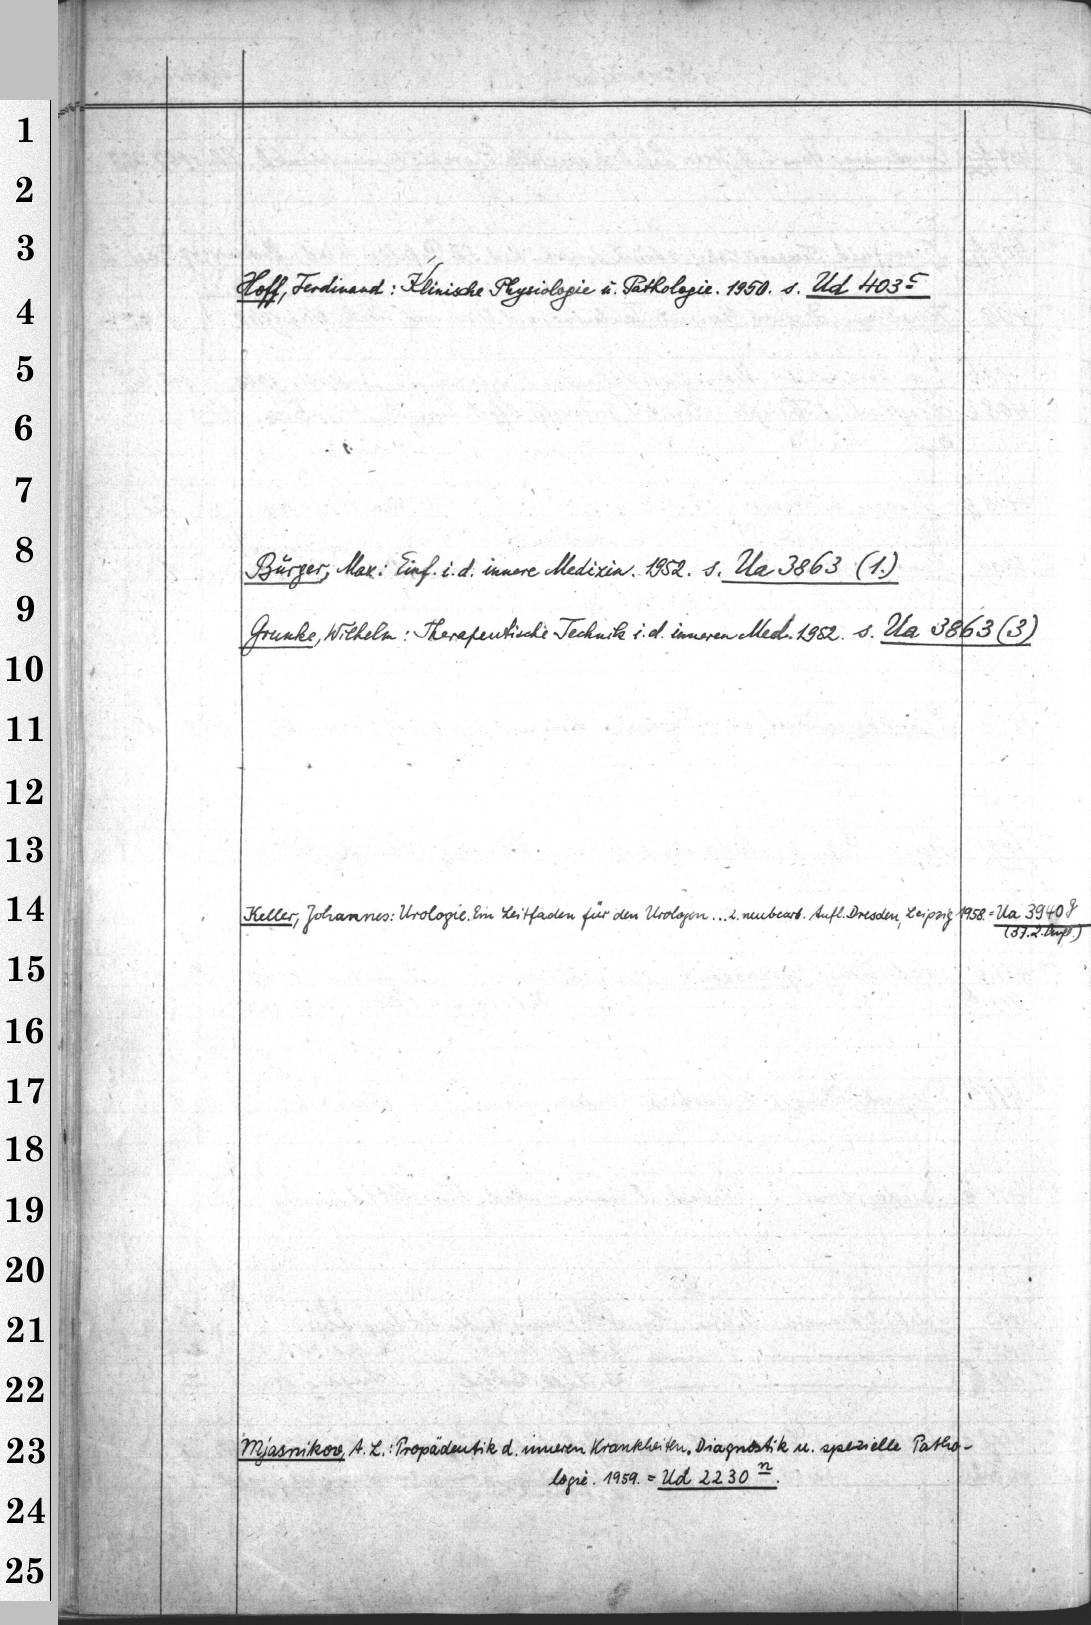 1
2
3
Hoff, Ferdinand: Klinische Physiologie u. Pathologie. 1950. s. Ud 403 c
4
5
6
7
8
Bürger, Max: Einf. i. d. innere Medizin. 1952. s. Ua 3863 (1.)
9
Grunke, Wilhelm: Therapeutische Technik i. d. inneren Med. 1952. s. Ua 3863 (3)
10
11
12
13
14
Keller, Johannes: Urologie. Ein Leitfaden für den Urologen ... 2. neubearb. Aufl. Dresden, Leipzig 1958. = Ua 3940 g
15
16
17
18
19
20
21
22
23
Mjasnikov, A. L.: Propädeutik d. inneren Krankheiten. Diagnostik u. spezielle Patho-
logie. 1959. = Ud 2230 n.
24
25